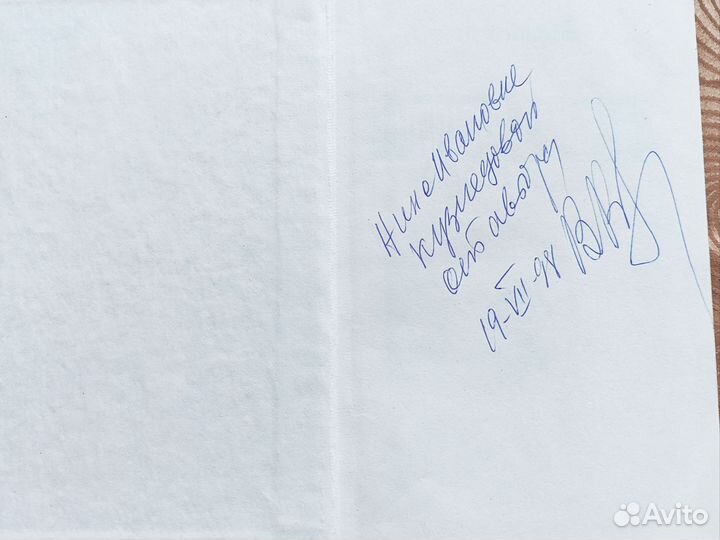 Нине Ивановне
Кузнецовой
от автора
19-VII-98
Avito